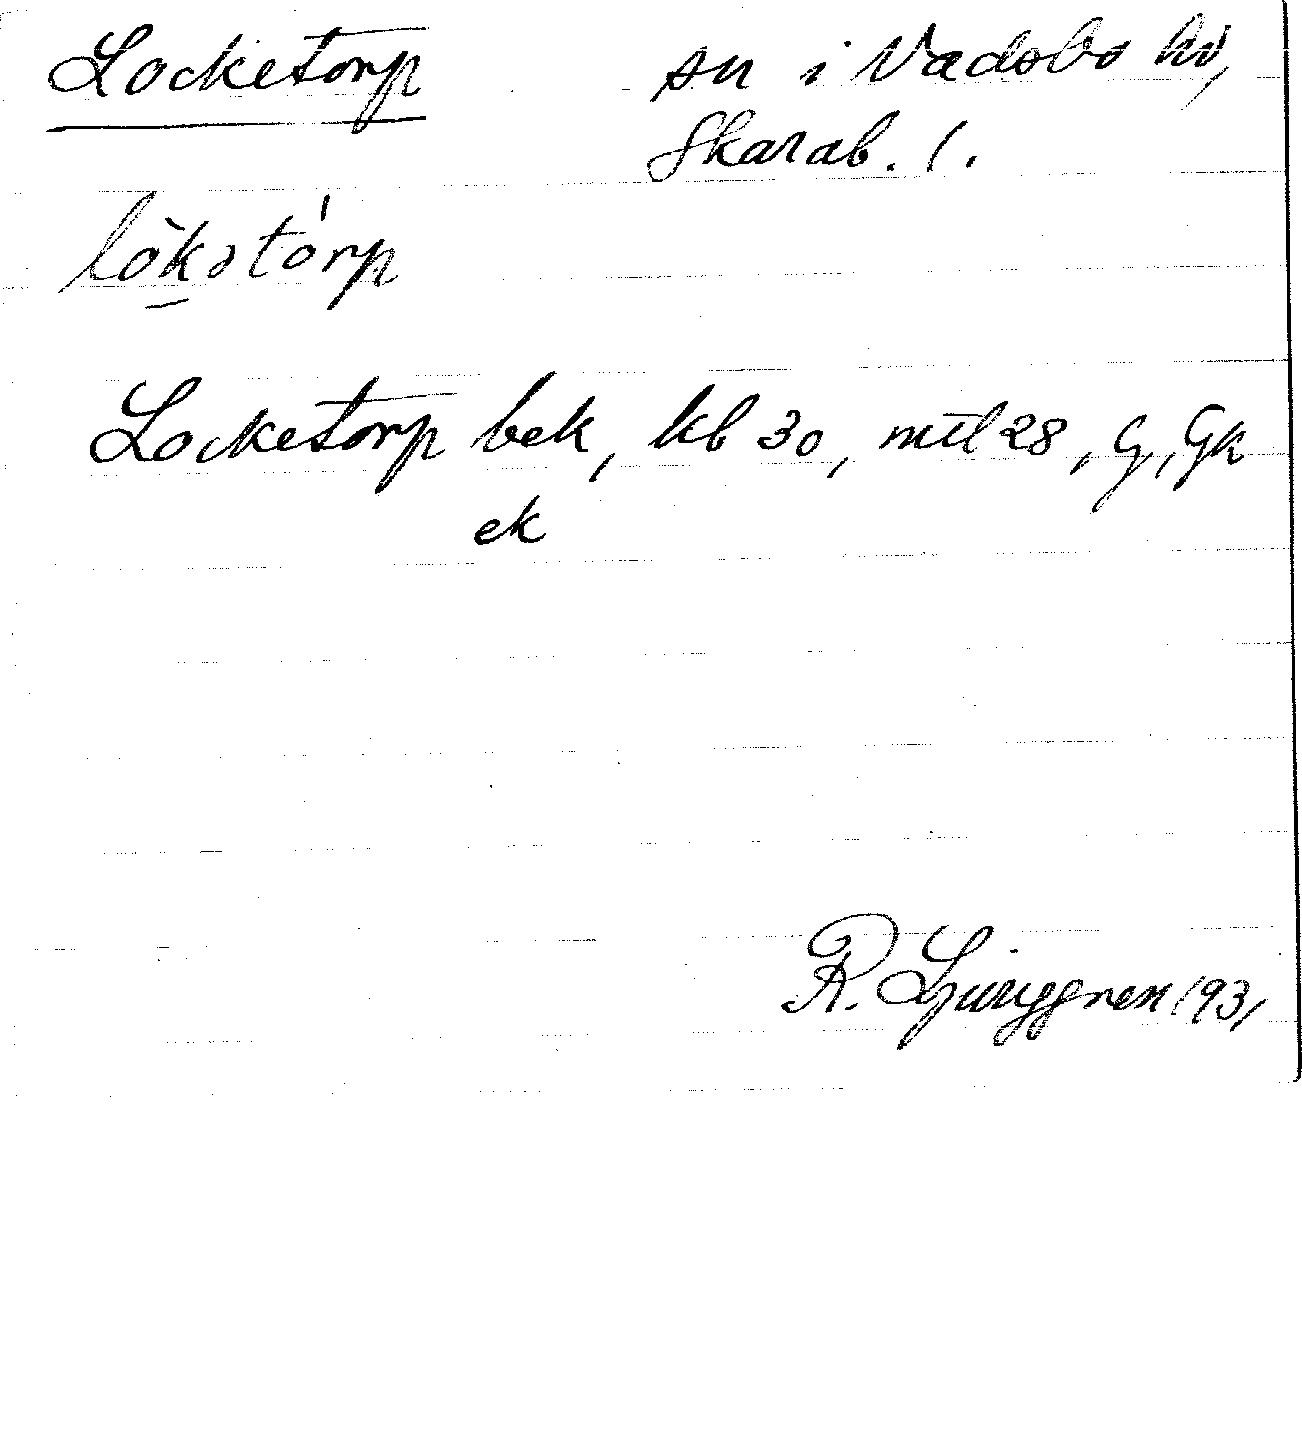 Locketorp sn i Vadsbo hd,
Skarab. l.
lòkətórp
Locketorp bek, kb 30, mtl 28, G, Gk
ek
R. Ljunggren 1931